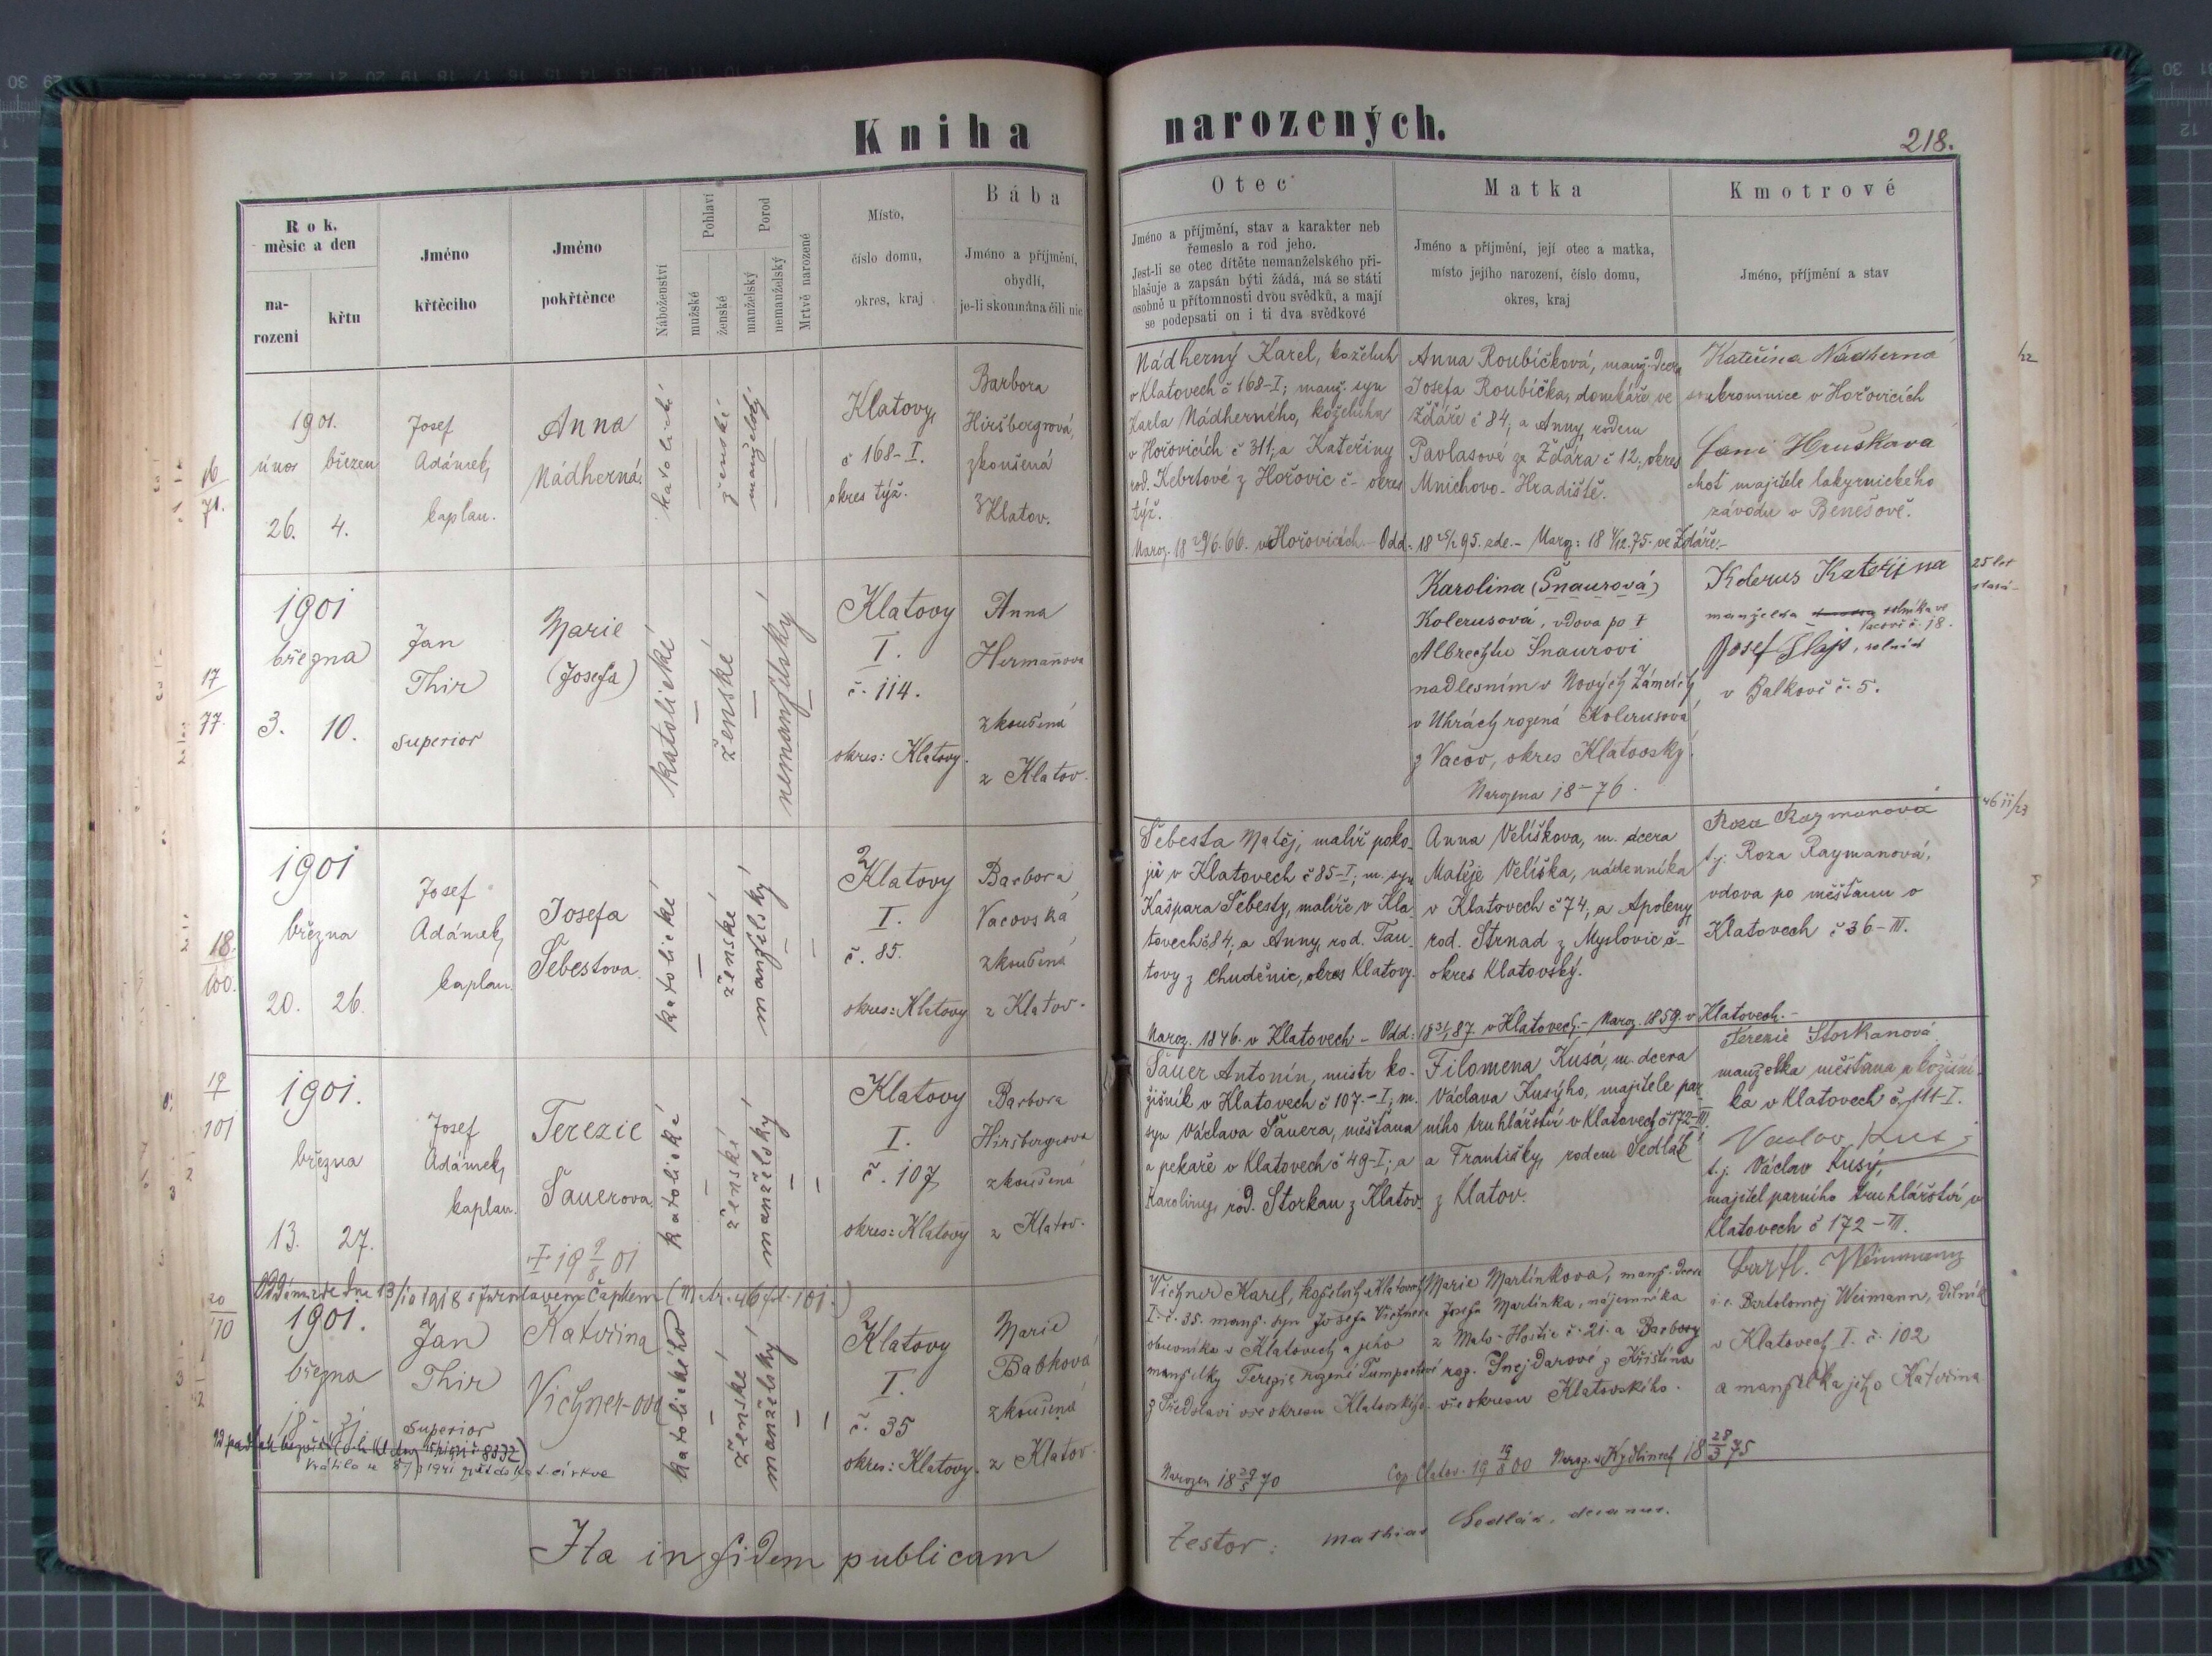 Kniha narozených.
218.
Rok, měsíc a den
narození
křtu
Jméno křtěcího
Jméno pokřtěnce
Náboženství
Pohlaví
mužské
ženské
Porod
manželský
nemanželský
Mrtvě narozené
Místo,
číslo domu,
okres, kraj
Bába
Jméno a příjmění,
obydlí,
je-li zkoumána čili nic
Otec
Jméno a příjmění, stav a karakter neb
řemeslo a rod jeho.
Jest-li se otec dítěte nemanželského při-
hlašuje a zapsán býti žádá, má se státi
osobně u přítomnosti dvou svědků, a mají
se podepsati on i ti dva svědkové
Matka
Jméno a příjmění, její otec a matka,
místo jejího narození, číslo domu,
okres, kraj
Kmotrové
Jméno, příjmění a stav
16
71.
1901.
únor březen
26. 4.
Josef
Adámek,
kaplan.
Anna
Nádherná.
katolické
ženské
manželský
Klatovy,
č 168-I.
okres týž.
Barbora
Hiršbergrová,
zkoušená
z Klatov.
Nádherný Karel, koželuh
v Klatovech č 168-I; manž. syn
Karla Nádherného, koželuha
v Hořovicích č 311; a Kateřiny
rod. Kebrtové z Hořovic č- okres
týž.
Anna Roubíčková, manž. dcera
Josefa Roubíčka, domkáře ve
Žďáře č 84; a Anny, rodem
Pavlasové ze Žďára č 12; okres
Mnichovo-Hradiště.
Kateřina Nádherná
soukromnice v Hořovicích
Fani Hruškava
choť majitele lakyrnického
závodu v Benešově.
Naroz. 18 29/6. 66. v Hořovicích - Odd: 95. zde. - Naroz: 18 4/12. 75. ve Žďáře. -
17
77.
1901
března
3. 10.
Jan
Thir
superior
Marie
(Josefa)
katolické
ženské
nemanželský
Klatovy
I.
č. 114.
okres: Klatovy.
Anna
Heřmanova
zkoušená
z Klatov.
Karolina (Šnaurová)
Kolerusová, vdova po †
Albrechtu Šnaurovi
nadlesním v Nových Zámcích
v Uhrách rozená Kolerusová
z Vacov, okres Klatovský.
Narozena 18-76.
Kolerus Kateřina
manželka rolníka ve
Vacově č. 18.
Josef Šlajs, rolník
v Balkově č. 5.
25 let
stará -
18.
100.
1901
března
20. 26.
Josef
Adámek,
kaplan.
Josefa
Šebestova.
katolické
ženské
manželský
Klatovy
I.
č. 85.
okres: Klatovy
Barbora
Vacovská
zkoušená
z Klatov.
Šebesta Matěj, malíř poko-
jů v Klatovech č 85-I; m. syn
Kašpara Šebesty, malíře v Kla-
tovech č 84; a Anny, rod. Tau-
tovy z Chuděnic, okres Klatovy.
Anna Velíškova, m. dcera
Matěje Velíška, nádenníka
v Klatovech č 74; a Apoleny,
rod. Strnad z Myslovic č-
okres Klatovský.
Roza Raymanová
t.j. Roza Raymanová,
vdova po měšťanu v
Klatovech č 36-III.
Naroz. 1846. v Klatovech - Odd: 18 31/5 87 v Klatovech. - Naroz. 1859. v Klatovech. -
19
101
1901.
března
13. 27.
Josef
Adámek,
kaplan.
Terezie
Šauerova.
† 19 9/8 01
katolické
ženské
manželský
Klatovy
I.
č. 107
okres: Klatovy
Barbora
Hiršbergrova
zkoušená
z Klatov.
Šauer Antonín, mistr ko-
žišník v Klatovech č 107.-I; m.
syn Václava Šauera, měšťana
a pekaře v Klatovech č 49-I; a
Karoliny, rod. Štorkan z Klatov.
Filomena Kusá, m. dcera
Václava Kusýho, majitele par-
ního truhlářství v Klatovech č 172-III.
a Františky, rodem Sedlák
z Klatov.
Terezie Štorkanová
manželka měšťana a kožišní-
ka v Klatovech č. 111-I.
Vaclav Kusý
t.j. Václav Kusý,
majitel parního truhlářství v
Klatovech č 172-III.
Oddána zde dne 13/10 1918 s Čapkem (Matr. 46 fol. 101.)
20
110
1901.
března
18 31
Jan
Thir
superior
Kateřina
Vichner-ova
katolického
ženské
manželský
Klatovy
I.
č. 35
okres: Klatovy.
Marie
Babková
zkoušená
z Klatov.
Vichner Karel, koželuh v Klatovech
I. č. 35. manž. syn Josefa Vichnera
obuvníka v Klatovech a jeho
manželky Terezie rozené Tumpachové
z Předslavi vše okresu Klatovského.
Marie Martínkova, manž. dcera
Josefa Martínka, nájemníka
z Malo-Hoštic č. 21. a Barbory
roz. Šnejdarové z Křištína
vše okresu Klatovského.
Bartl. Weimann
i.e. Bartoloměj Weimann, dělník
v Klatovech I. č. 102
a manželka jeho Kateřina
Narozen 18 29/5 70
Cop. Klatov. 19 19/8 00 Naroz. v Kydlinech 18 28/3 75
Ita in fidem publicam
testor: Mathias Sedlák, decanus.